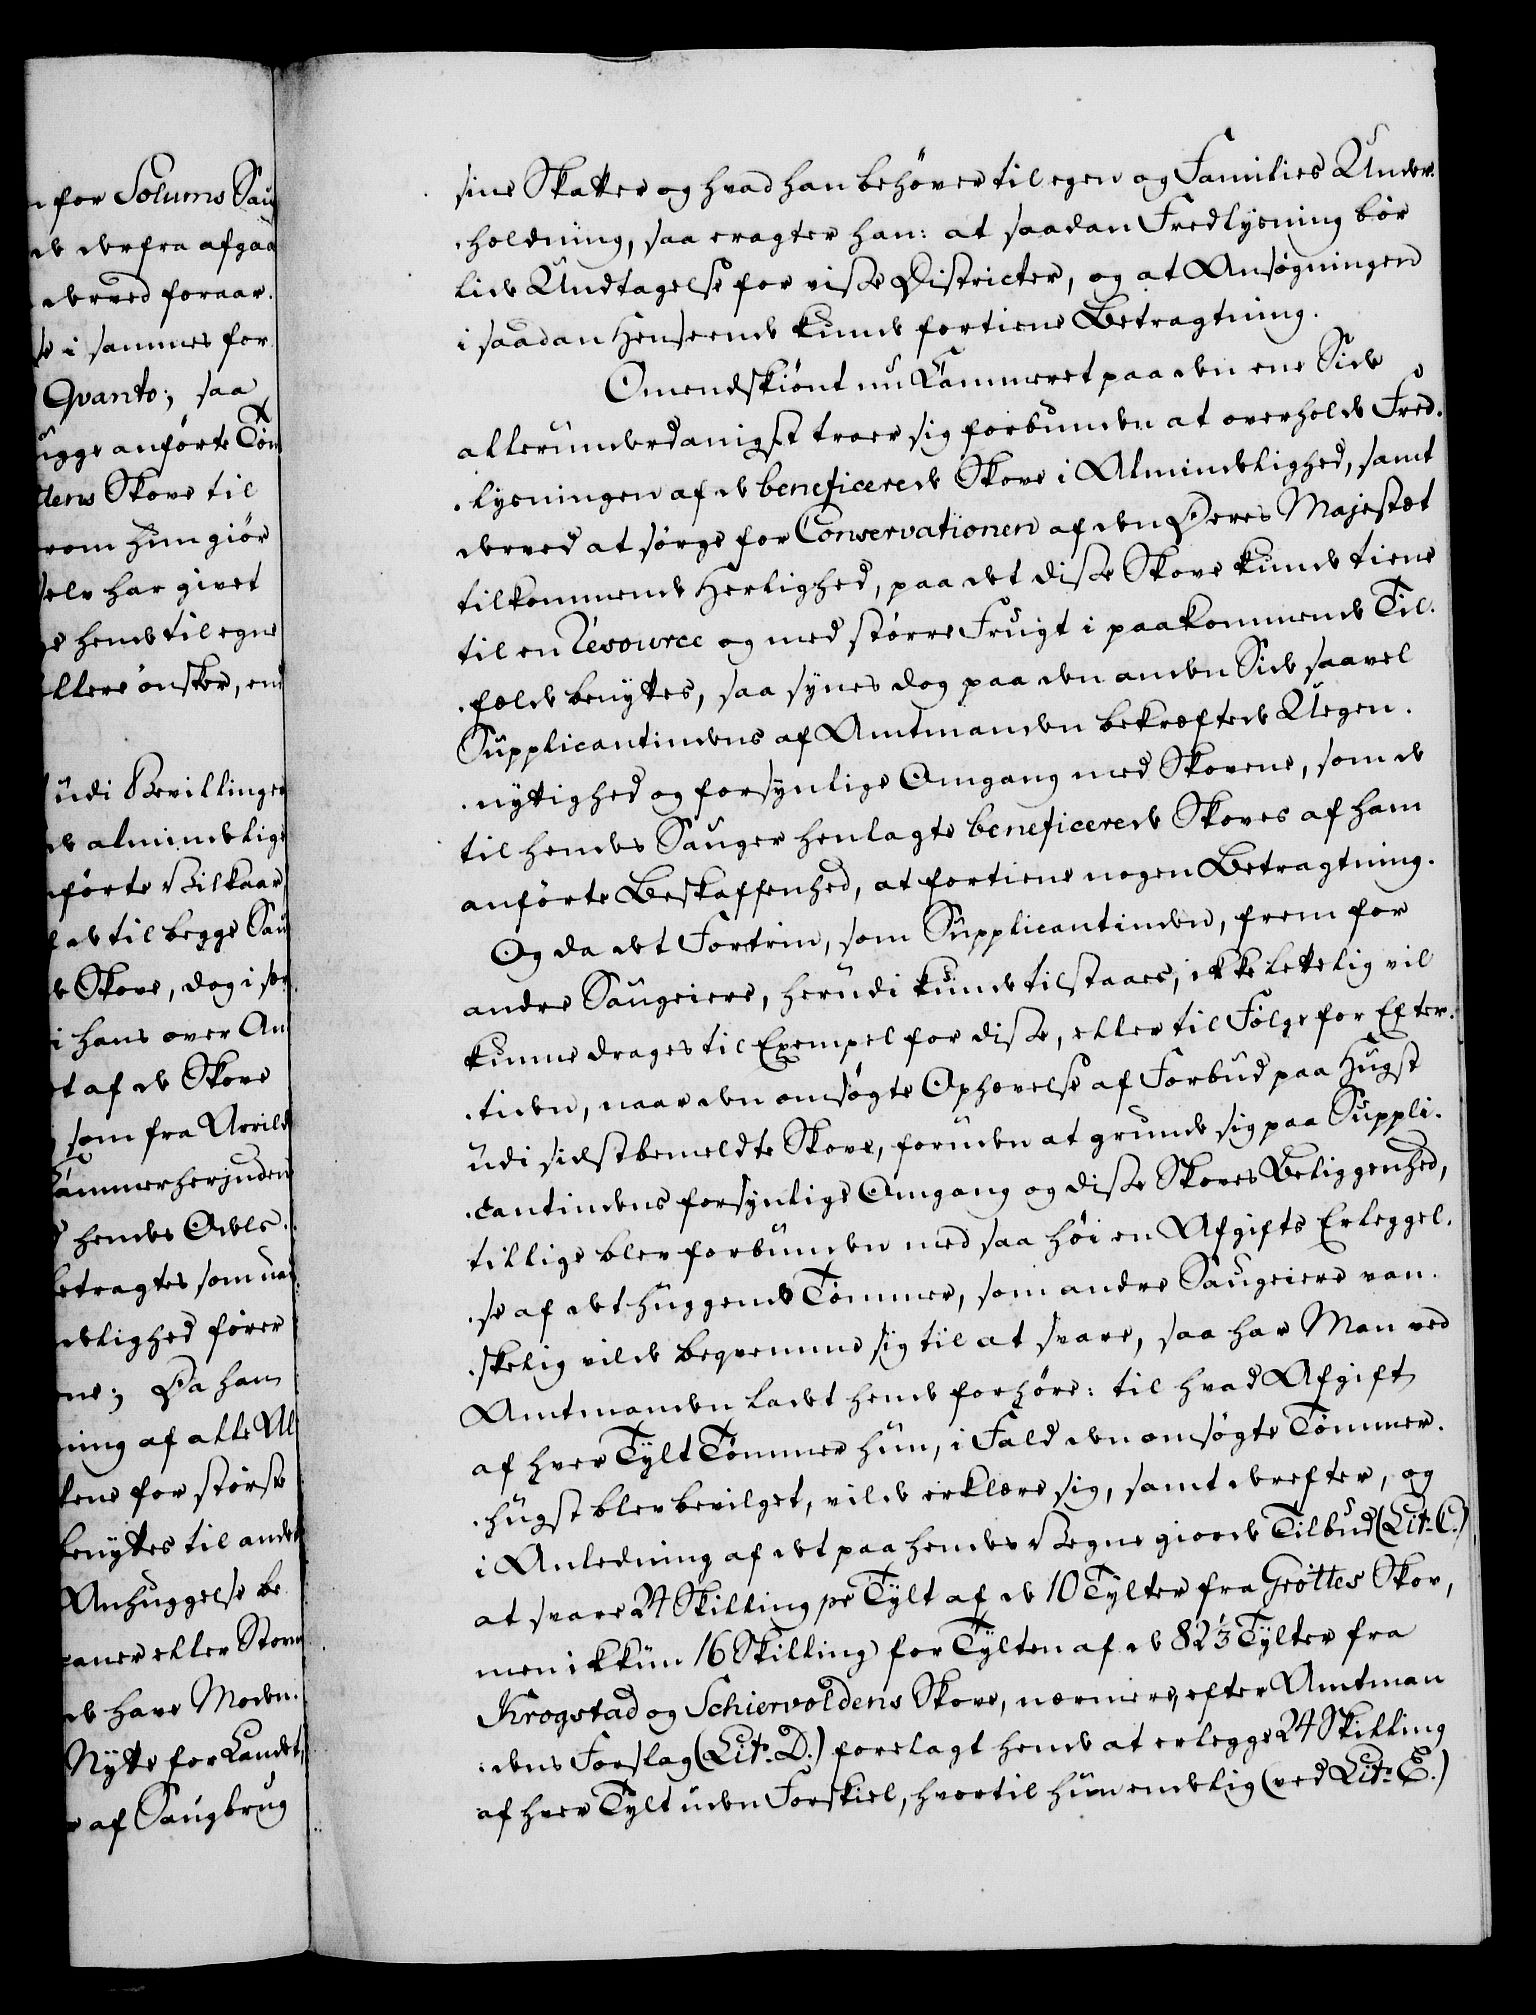 n for Solums Sau
de derfra afgaa
derved foraar.
se i sammes for
Qvanto; saa
ugge anförte Töm
dens Skove til
rom hun giör
selv har givet
e hende til egne
ellere önsker, end
udi Bevillingen
de almindelige
nförte Vilkaar,
l de til begge Sau
e Skove, dog i sær
i hans over An
t af de Skove
som fra Arrild
Cammerherjnden
d hendes Odels.
betragtes som nød
delighed fører
ne; Da han
ning af alle Al
kene for største
benyttes til andet
Anhuggelse be
caner eller Storm
de have Moden.
Nytte for Landet,
r af Saugbrug
sine Skatter og hvad han behöver til egen og Families Under-
holdning, saa eragter han: at saadan Fredlysning bör
lide Undtagelse for visse Districter, og at Ansögningen
i saadan Henseende kunde fortiene Betragtning.
Omendskiönt nu Cammeret paa den ene Side
allerunderdanigst troer sig forbunden at overholde Fred-
lysningen af de beneficerede Skove i Almindelighed, samt
derved at sörge for Conservationen af den Deres Majestæt
tilkommende Herlighed, paa det disse Skove kunde tiene
til en Resource og med större Frugt i paakommende Til-
fælde benyttes, saa synes dog paa den anden Side saavel
Supplicantindens af Amtmanden bekræftede Uegen-
nyttighed og forsynlige Omgang med Skovene, som de
til hendes Sauger henlagte beneficerede Skoves af ham
anförte Beskaffenhed, at fortiene nogen Betragtning.
Og da det Fortrin, som Supplicantinden, frem for
andre Saugeiere, herudi kunde tilstaaes, ikke lettelig vil
kunne drages til Exempel for disse, eller til Fölge for Efter-
tiden, naar den omsögte Ophævelse af Forbud paa Hugst
udi sidstbemeldte Skove, foruden at grunde sig paa Suppli-
cantindens forsynlige Omgang og disse Skoves Beliggenhed,
tillige blev forbunden med saa höi en Afgifts Erleggel-
se af det huggende Tömmer, som andre Saugeiere van-
skelig vilde beqvemme sig til at svare, saa har Man ved
Amtmanden ladet hende forhöre: til hvad Afgift
af hver Tylt Tömmer hun, i Fald den omsögte Tömmer-
hugst blev bevilget, vilde erklære sig, samt derefter, og
i Anledning af det paa hendes Vegne giorde Tilbud (Lit. C.)
at svare 24 Skilling pr Tylt af de 10 Tylter fra Gröttes Skov,
men ikkun 16 Skilling for Tylten af de 82 1/3 Tylter fra
Krogstad og Schiervoldens Skove, nærmere, efter Amtman-
dens Forslag (Lit. D.) forelagt hende at erlegge 24 Skilling
af hver Tylt uden Forskiel, hvortil hun endelig (ved Lit. E.)